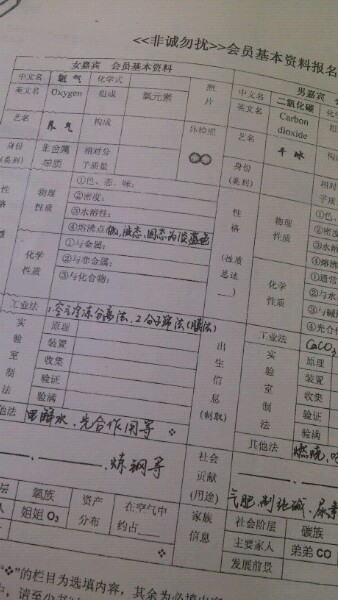 <<非诚勿扰>>会员基本资料报名
女嘉宾 会员基本资料
男嘉宾
中文名 氧气 化学式 照片
中文名 二氧化碳
英文名 Oxygen 组成 氧元素
英文名 Carbon dioxide
艺名 养气 构成
艺名 干冰
身份(类别) 非金属单质 相对分子质量
身份(类别)
性格
物理性质
①色、态、味:
②密度:
③水溶性:
④熔沸点 低,液态、固态为淡蓝色
化学性质
①与金属:
②与非金属:
③与化合物:
性格(性质总述)
物理性质
①色、
②密度:
③水溶
④熔沸
化学性质
①通常
②与水
③与碱
④光合作
工业法 1.空气冷冻分离法,2.分子筛法(膜法)
工业法 CaCO₃
实验室制法
原理
装置
收集
验证
验满
出生信息(制取)
实验室制法
原理
装置
收集
验证
验满
其他法 电解水,光合作用等
其他法 燃烧,
炼钢等
社会贡献(用途)
气肥,制纯碱,尿素
氧族 资产分布 在空气中约占
家族信息 社会阶层 碳族
姐姐 O₃
主要家人 弟弟 CO
发展前景
“❖”的栏目为选填内容,其余为必填